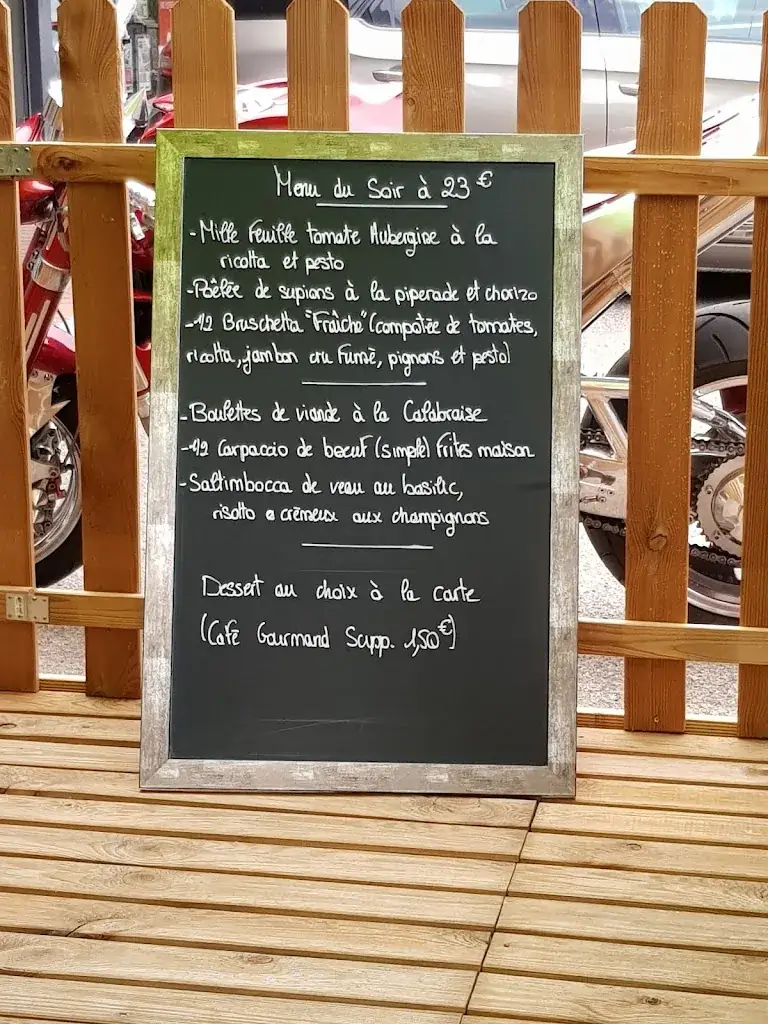 Menu du Soir à 23 €
- Mille Feuille tomate Aubergine à la
ricotta et pesto
- Poêlée de supions à la piperade et chorizo
- 1/2 Bruschetta "Fraîche" (compotée de tomates,
ricotta, jambon cru Fumé, pignons et pesto)
- Boulettes de viande à la Calabraise
- 1/2 Carpaccio de boeuf (simple) Frites maison
- Saltimbocca de veau au basilic,
risotto e crémeux aux champignons
Dessert au choix à la carte
(Café Gourmand Supp. 1,50€)